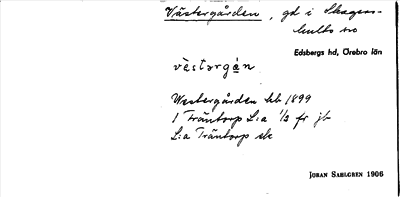 Västergården, gd i Skagers-
hults sn
Edsbergs hd, Örebro län
västərgán
Westergården hb 1899
1 Träntorp L:a 1/2 fr jb
L:a Träntorp sk
JOHAN SAHLGREN 1906